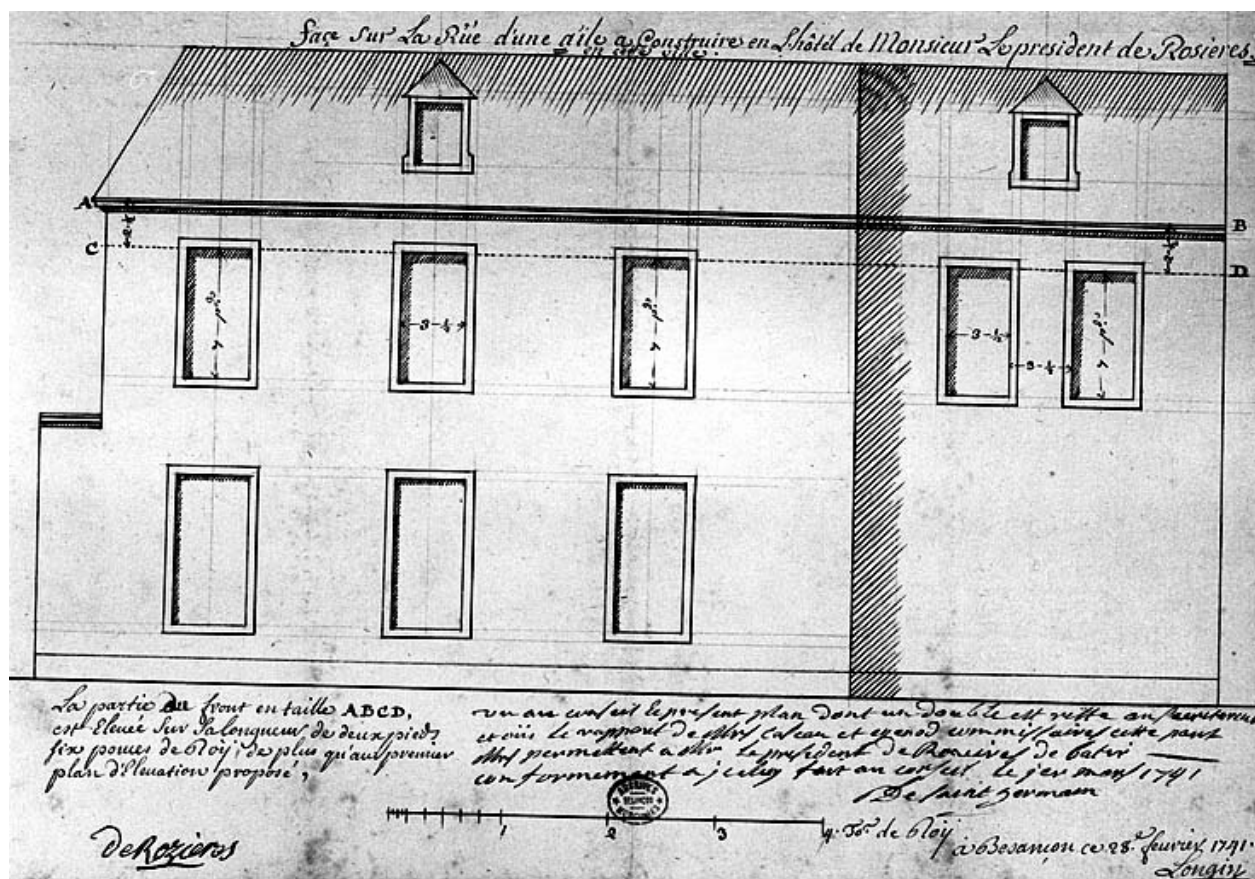 façe sur La Rüe d'une aîle a Construire en L'hôtel de Monsieur Le president de Rosieres.
en cette ville.
A
B
2-½
2-½
C
D
7 pds
3-½
7 pds
3-½
3-½
7 pds
La partie du front en taille ABCD,
est Elevée sur sa longueur de deux pieds
six pouces de Roy, de plus qu'au premier
plan d'Elevation proposé,
vu au conseil le present plan dont un double est resté au secretariat
et ouis le rapport de Mrs Caseau et commissaires cette part
Mrs permettent a Mr Le president de Rozieres de batir
conformement a jceluy fait au conseil le jer mars 1741
De Saint Germain
ARCHIVES
BESANÇON
MUNICIPALES
1
2
3
4. Tes. de Roy
DeRozieres
à Besançon ce 28e. fevrier 1741.
Longin